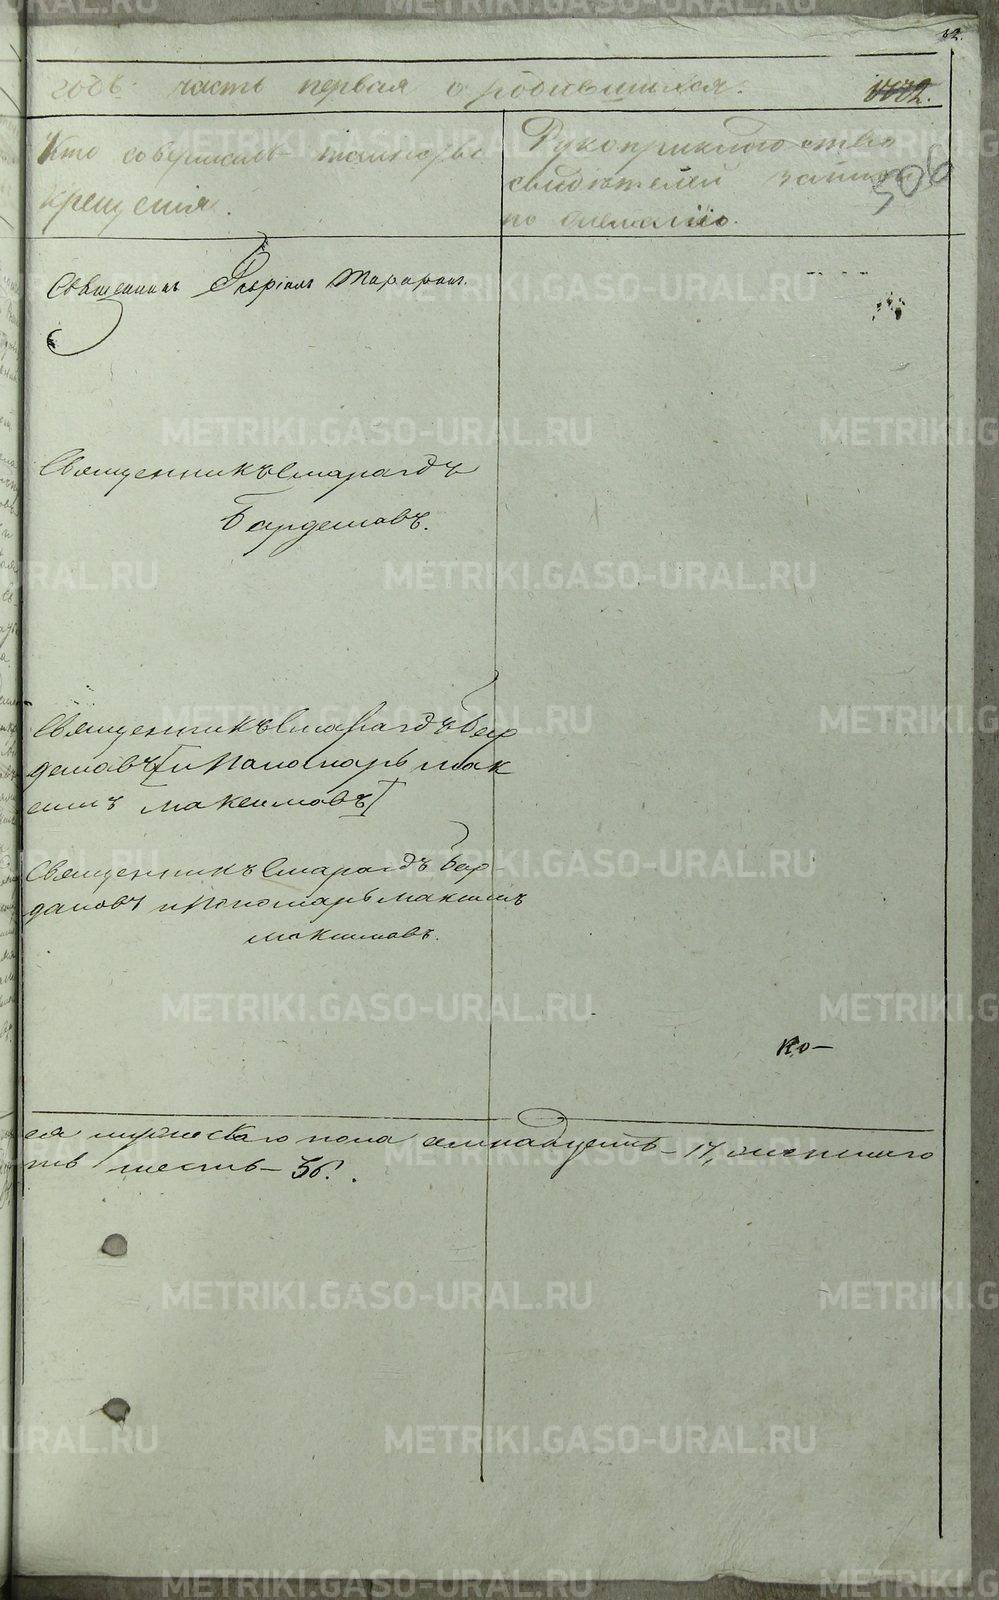 годъ. часть первая о родившихся.
Кто совершалъ таинство
крещенія.
Рукоприкладство
свидѣтелей записи
по желанію.
506
Священникъ
Священникъ Смарагдъ
Бордешовъ.
Священникъ Смарагдъ Бор
дешовъ [и Пономарь Мак
симъ Максимовъ]
Священникъ Смарагдъ Бор-
дановъ и Пономарь Максимъ
Максимовъ.
Ко-
ся мужескаго пола семнадцать - 17, женскаго
ть шесть - 36.
METRIKI.GASO-URAL.RU